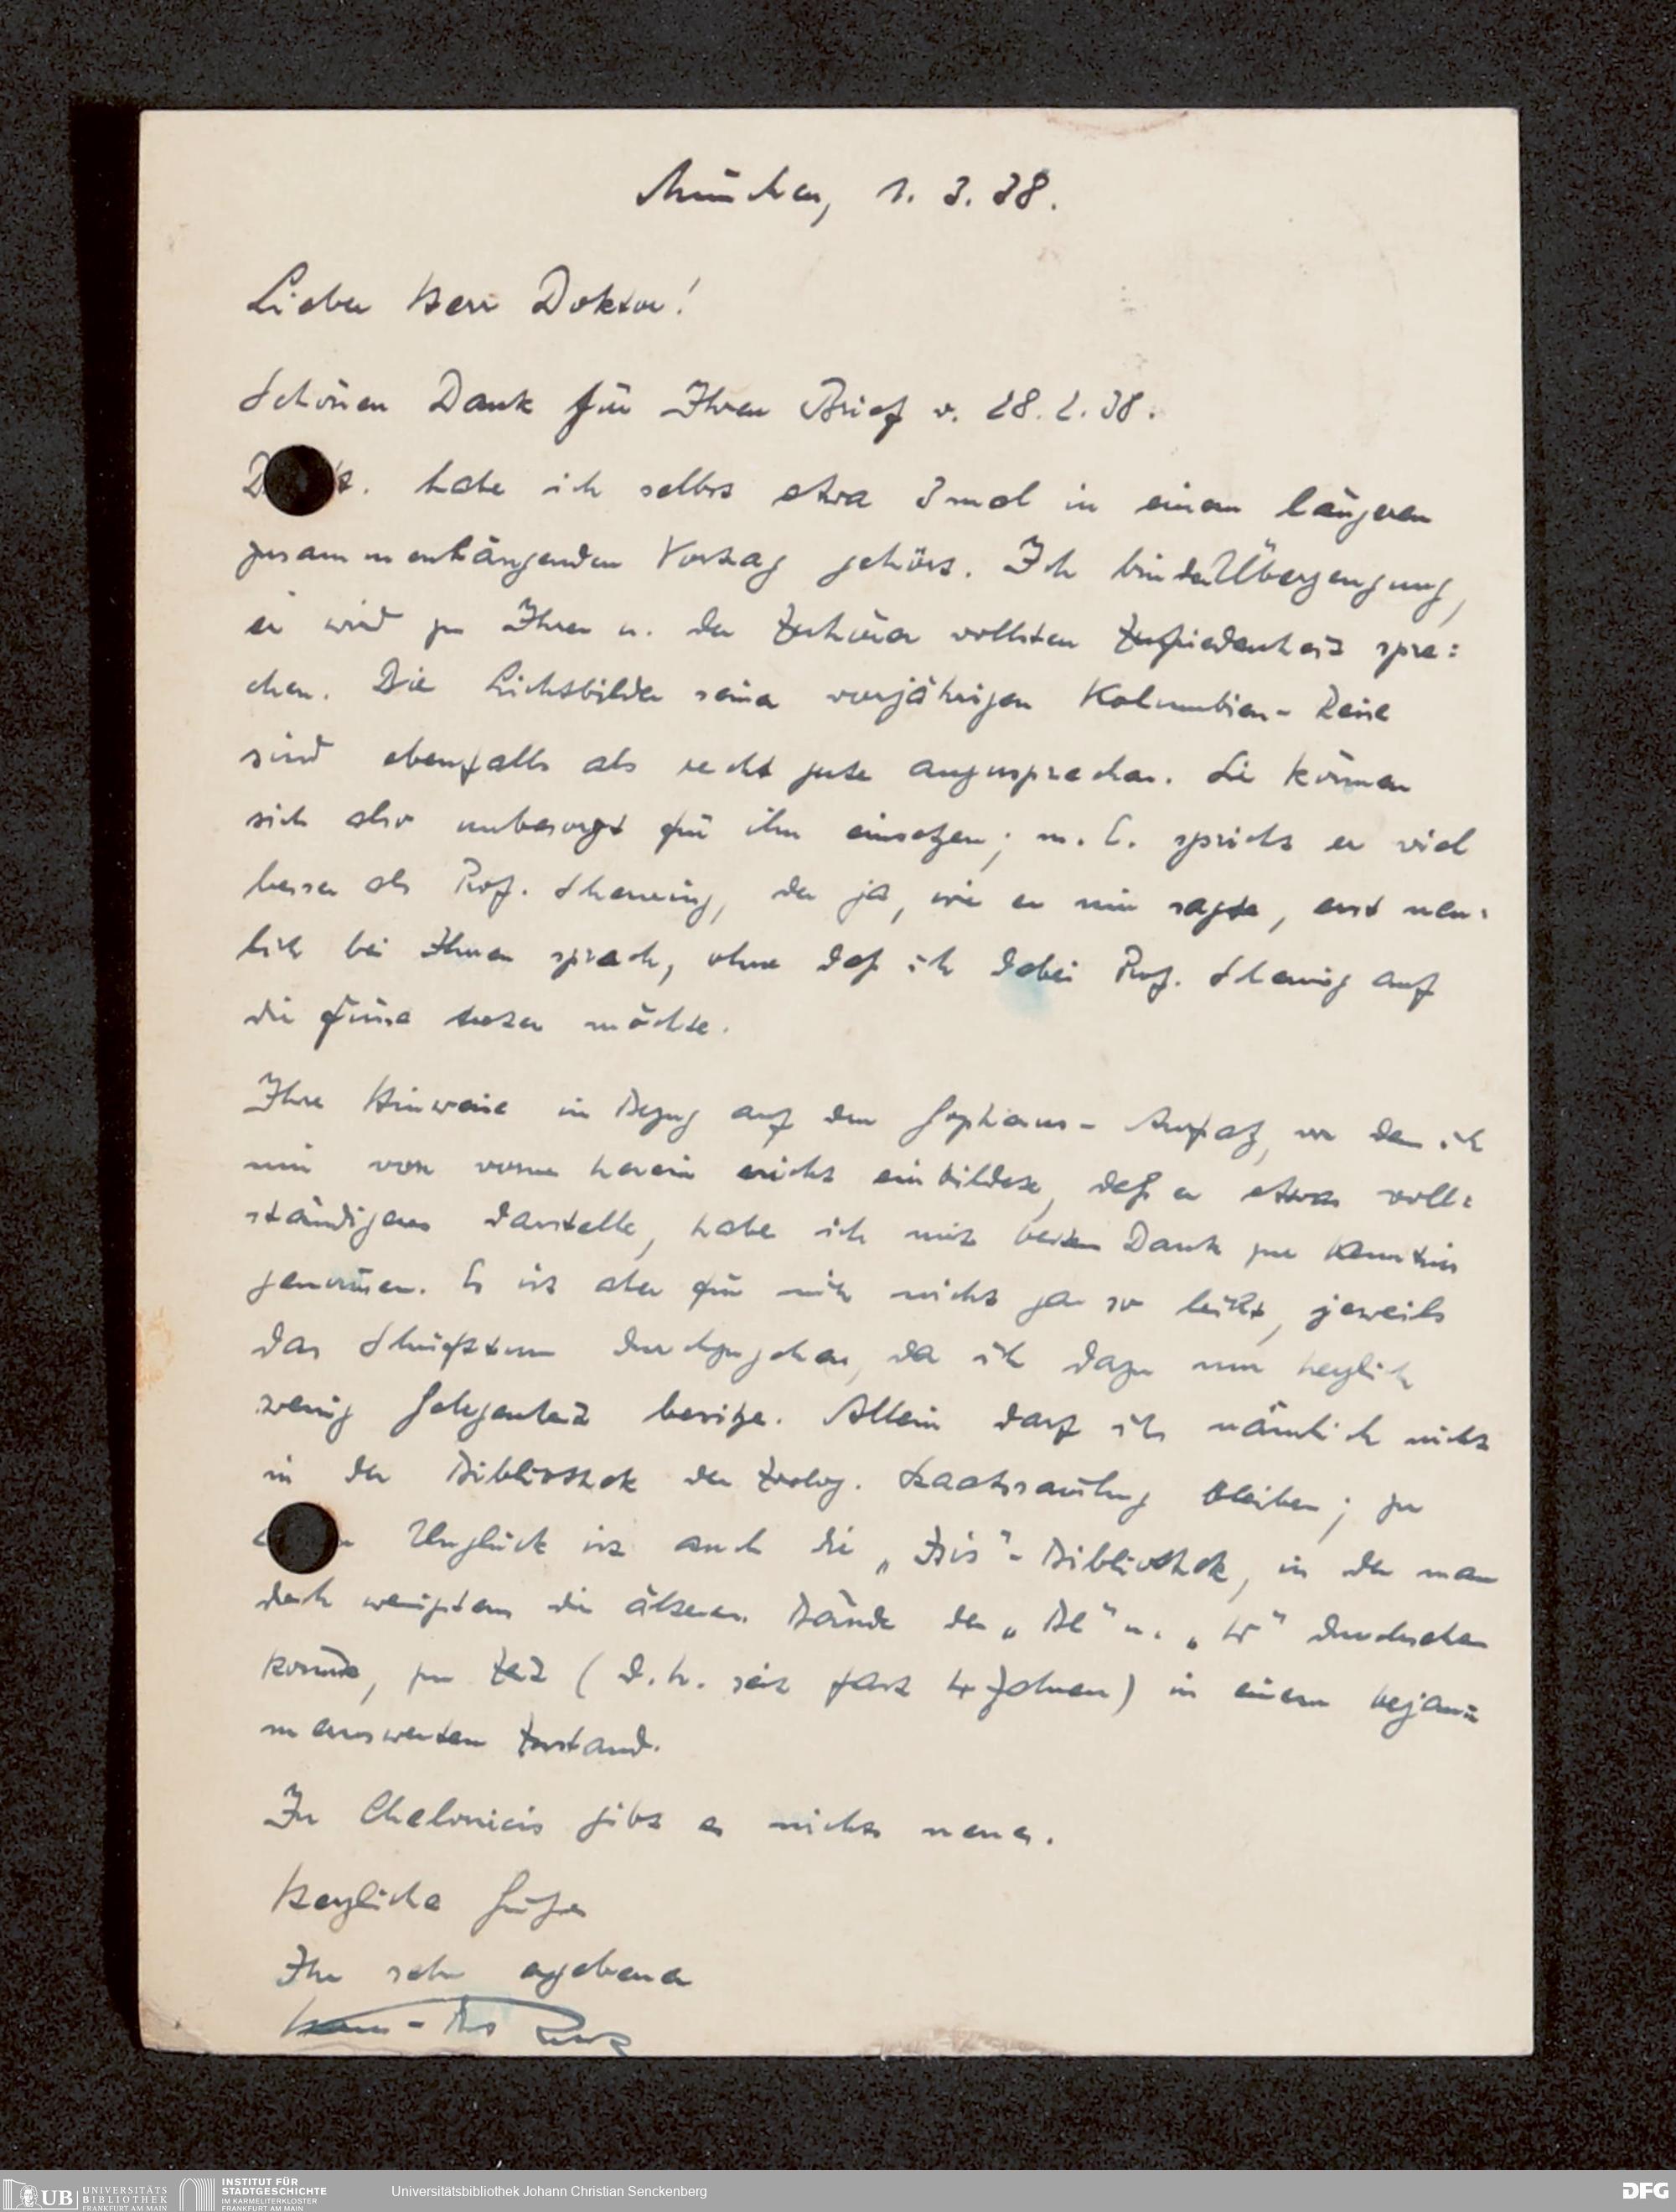 München, 1. 3. 38.
Lieber Herr Doktor!
Schönen Dank für Ihren Brief v. 28. 2. 38.
habe ich selbst etwa 3 mal in einem längeren
zusammenhängenden Vortrag gehört. Ich bin der Überzeugung,
er wird zu Ihrer u. der Zuhörer vollsten Zufriedenheit spre=
chen. Die Lichtbilder seiner vorjährigen Kolumbien- Reise
sind ebenfalls als recht gute anzusprechen. Sie können
sich also unbesorgt für ihn einsetzen; m. E. spricht er viel
besser als Prof. , der ja, wie er mir sagte, erst neu=
lich bei Ihnen sprach, ohne daß ich dabei Prof. auf
die Füsse treten möchte.
Ihre Hinweise in Bezug auf den Gopherus- Aufsatz, von dem ich
mir von vorne herein nicht einbildete, daß er etwas voll=
ständiges darstelle, habe ich mit bestem Dank zur Kenntnis
genommen. Es ist aber für mich nicht gar so leicht, jeweils
das Schrifttum durchzugehen, da ich dazu nur herzlich
wenig Gelegenheit besitze. Allein darf ich nämlich nicht
in der Bibliothek der Zoolog. Staatssammlung bleiben; zu
Unglück ist auch die „Isis"- Bibliothek, in der man
doch wenigstens die älteren Bände der „Bl" u. „W" durchsehen
konnte, zur Zeit (d. h. seit fast 4 Jahren) in einem bejam=
mernswerten Zustand.
In Cheloniciis gibt es nichts neues.
Herzliche Grüße
Ihr sehr ergebener
UB UNIVERSITÄTS BIBLIOTHEK FRANKFURT AM MAIN
INSTITUT FÜR STADTGESCHICHTE IM KARMELITERKLOSTER FRANKFURT AM MAIN
Universitätsbibliothek Johann Christian Senckenberg
DFG